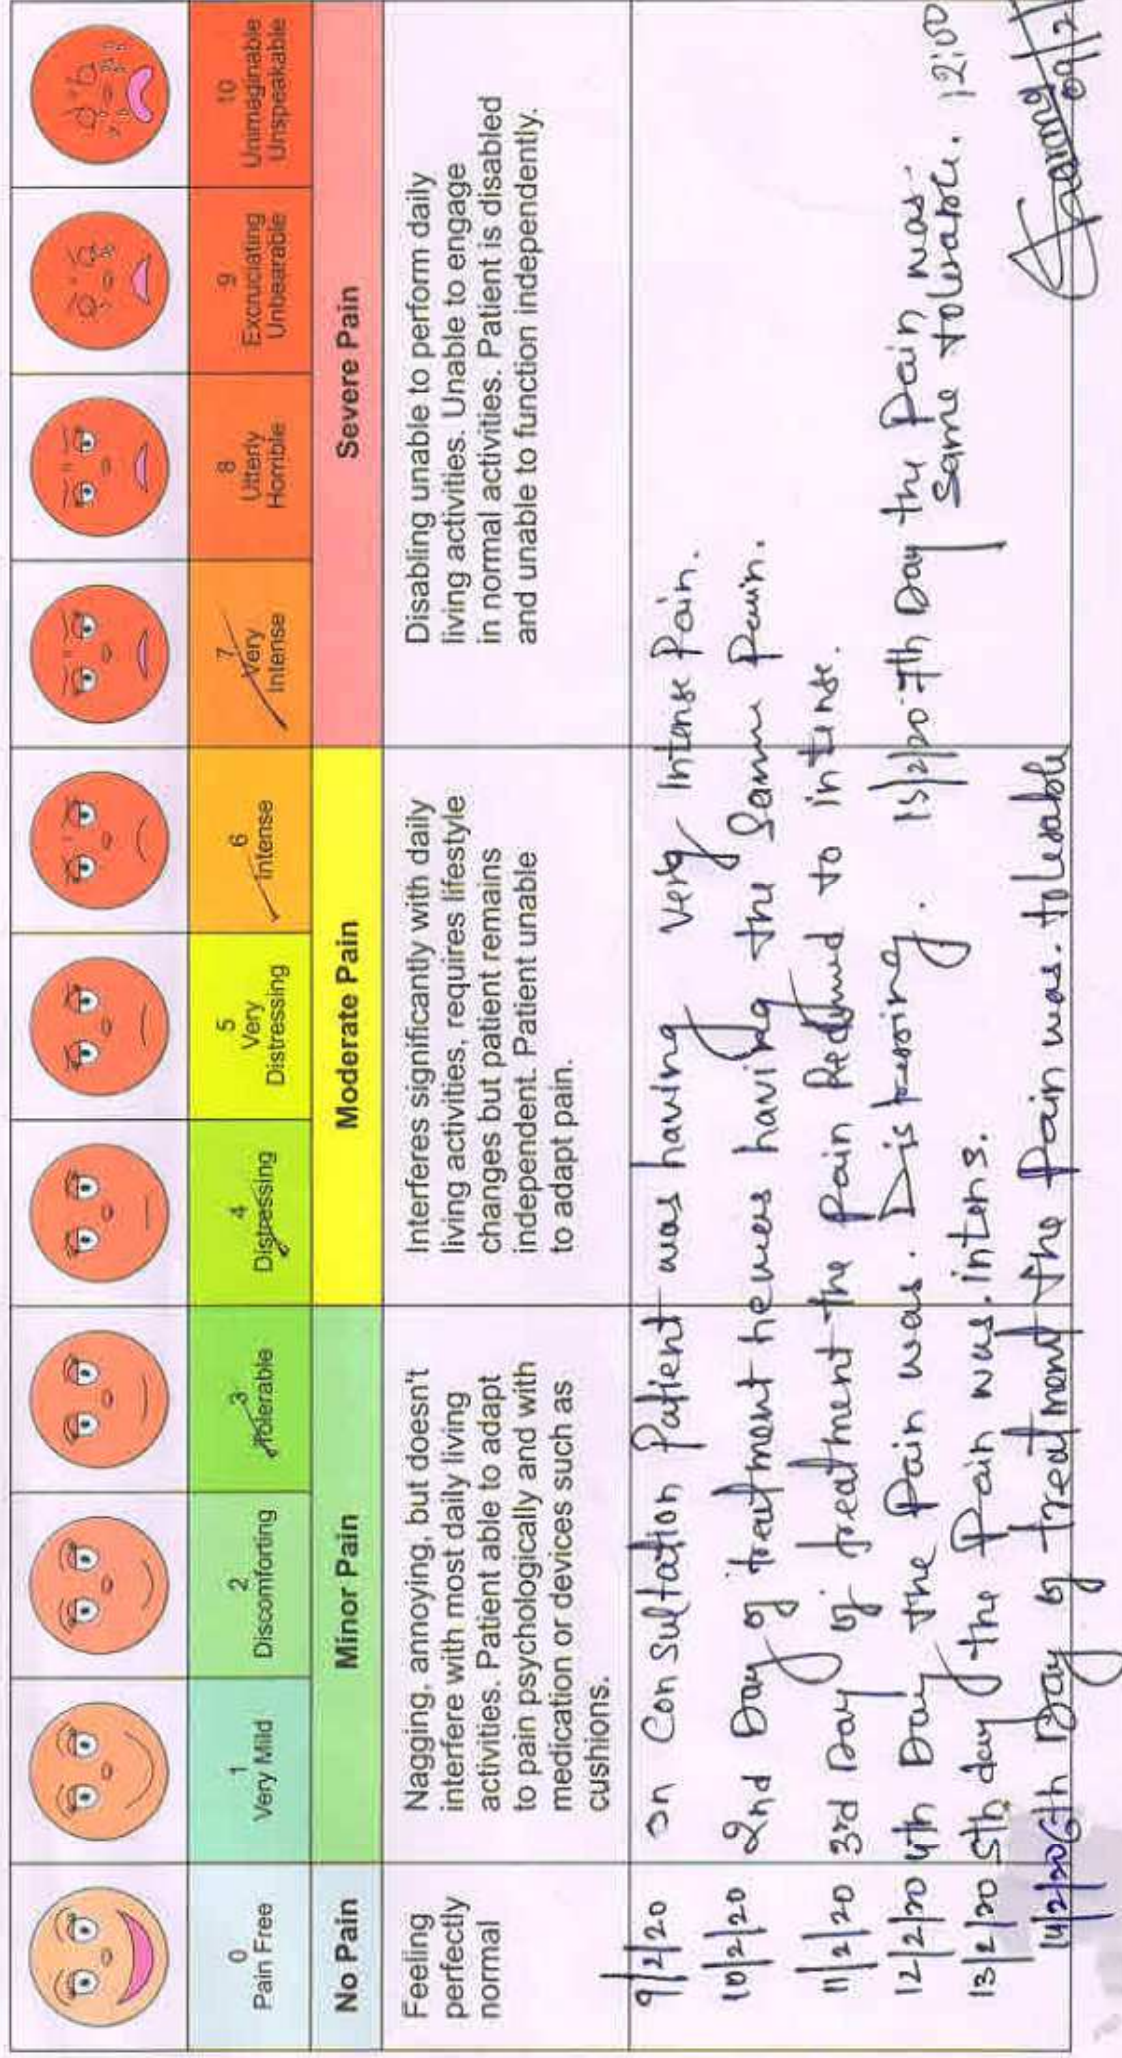 0
Pain Free
1
Very Mild
2
Discomforting
3
Tolerable
4
Distressing
5
Very
Distressing
6
Intense
7
Very
Intense
8
Utterly
Horrible
9
Excruciating
Unbearable
10
Unimaginable
Unspeakable
No Pain
Minor Pain
Moderate Pain
Severe Pain
Feeling
perfectly
normal
Nagging, annoying, but doesn't
interfere with most daily living
activities. Patient able to adapt
to pain psychologically and with
medication or devices such as
cushions.
Interferes significantly with daily
living activities, requires lifestyle
changes but patient remains
independent. Patient unable
to adapt pain.
Disabling unable to perform daily
living activities. Unable to engage
in normal activities. Patient is disabled
and unable to function independently.
9/2/20 On Consultation Patient was having very Intense Pain.
10/2/20 2nd Day of treatment hewas having the Same Pain.
11/2/20 3rd Day of treatment the Pain Reduced to intense.
12/2/20 4th Day the Pain was. Distressing.
13/2/20 5th day the Pain was. intens.
14/2/20 6th Day of treatment the Pain was. tolerable
15/2/20 7th Day the Pain was.
Same tolerable. 12:00